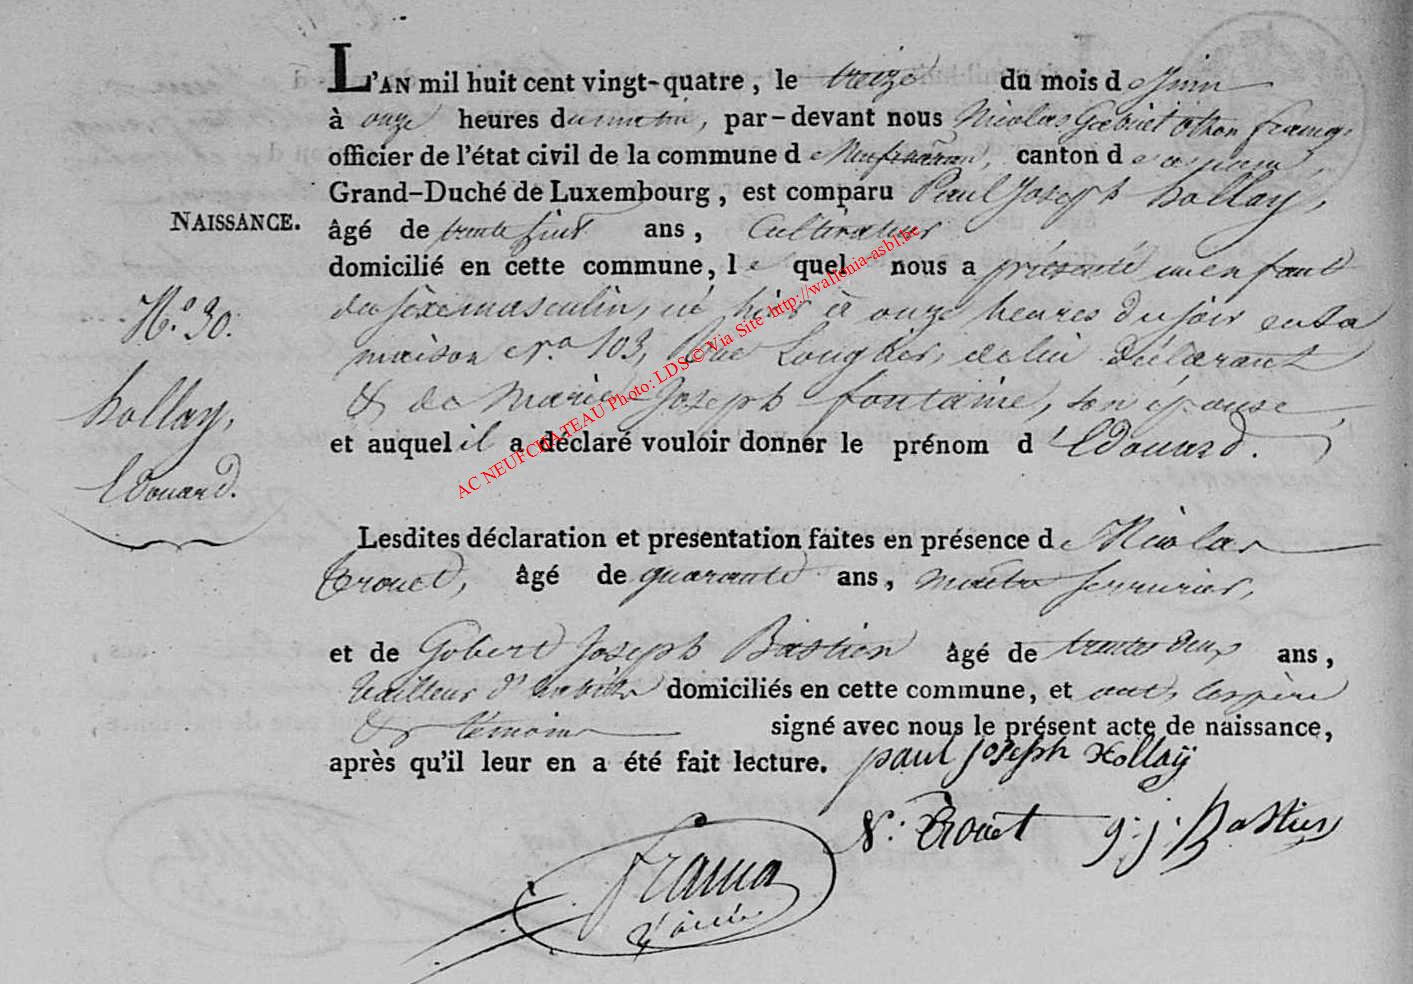 L'AN mil huit cent vingt-quatre, le treize du mois de Juin
à onze heures du matin, par-devant nous Nicolas
officier de l'état civil de la commune de Neufchâteau, canton de
Grand-Duché de Luxembourg, est comparu Paul Joseph hollay,
NAISSANCE.
âgé de trente huit ans, Cultivateur
domicilié en cette commune, le quel nous a présenté un enfant
N.o 30.
du sexe masculin, né hier à onze heures du soir en sa
maison N.o 103, de lui déclarant
hollay,
& de Marie Joseph fontaine, son épouse,
et auquel il a déclaré vouloir donner le prénom d'Edouard.
Edouard.
AC NEUFCHATEAU Photo: LDS © Via Site http://wallonia-asbl.be
Lesdites déclaration et presentation faites en présence de Nicolas
Trouet, âgé de quarante ans, maître serrurier,
et de Gobert Joseph Bastien âgé de trente deux ans,
tailleur d'habits domiciliés en cette commune, et ont, les père
& témoins signé avec nous le présent acte de naissance,
après qu'il leur en a été fait lecture. paul joseph Hollaÿ
N. Trouet g. j. Bastien